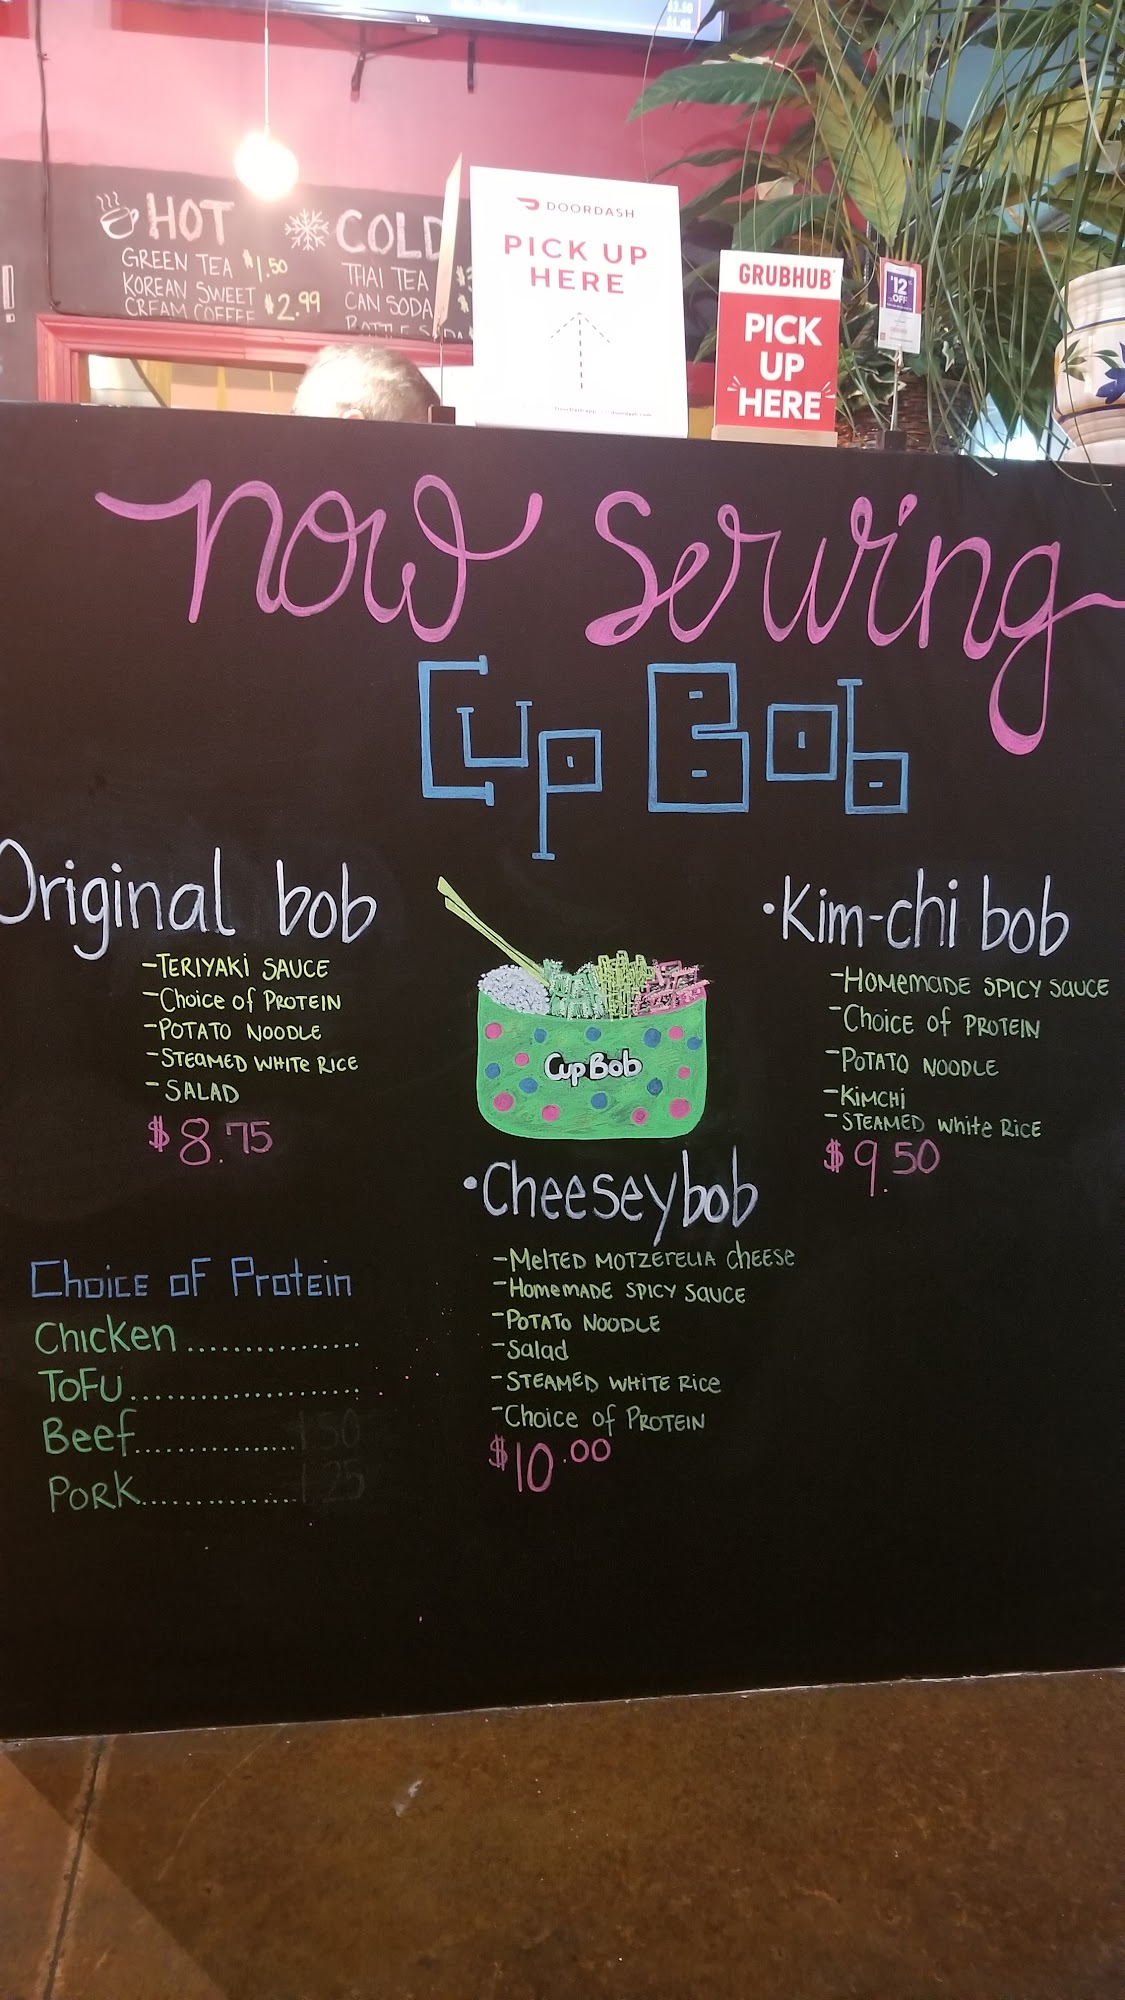 TCL
HOT
GREEN TEA $1.50
KOREAN SWEET
CREAM COFFEE $2.99
COLD
THAI TEA
CAN SODA
BOTTLE SODA
DOORDASH
PICK UP
HERE
GRUBHUB
PICK
UP
HERE
$12
OFF
now serving
Cup Bob
Original bob
-TERIYAKI SAUCE
-CHOICE OF PROTEIN
-POTATO NOODLE
-STEAMED WHITE RICE
-SALAD
$8.75
Cup Bob
•Kim-chi bob
-HOMEMADE SPICY SAUCE
-CHOICE OF PROTEIN
-POTATO NOODLE
-KIMCHI
-STEAMED WHITE RICE
$9.50
•Cheesey bob
-MELTED MOTZERELIA CHEESE
-HOMEMADE SPICY SAUCE
-POTATO NOODLE
-Salad
-STEAMED WHITE RICE
-CHOICE OF PROTEIN
$10.00
Choice of Protein
Chicken................
TOFU......................
Beef...............1.50
PORK..............1.25